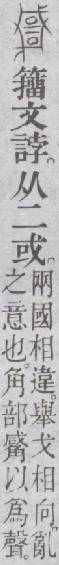 籒文誖。从二或。
兩國相違。舉戈相向。亂
之意也。角部𧥑以爲聲。